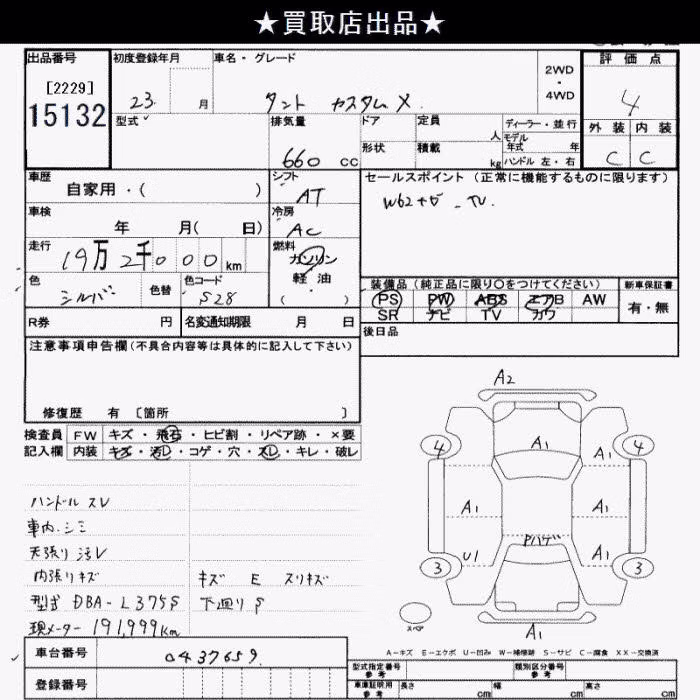 ★買取店出品★
出品番号 初度登録年月 車名・グレード 2WD ・ 4WD 評価点
[2229]
15132
23 月 タント カスタムX 4
型式 排気量 ドア 定員 人 ディーラー・並行 外装 内装
モデル年式 年
660 cc 形状 積載 kg ハンドル 左・右 C C
車歴 シフト セールスポイント(正常に機能するものに限ります)
自家用・( ) AT
車検 冷房
年 月( 日) AC
走行 燃料
19万2千000km ガソリン
色 色替 色コード 軽油 装備品(純正品に限り○をつけてください) 新車保証書
シルバー S28 ( ) PS PW ABS エアB AW 有・無
SR ナビ TV カワ
R券 円 名変通知期限 月 日 後日品
注意事項申告欄(不具合内容等は具体的に記入して下さい)
修復歴 有 〔箇所 〕
検査員 FW キズ・飛石・ヒビ割・リペア跡・×要
記入欄 内装 キズ・汚レ・コゲ・穴・スレ・キレ・破レ
ハンドル スレ
車内シミ
天張り汚レ
内張りキズ キズ E スリキズ
型式 DBA-L375S 下廻りS
現メーター 191,999km
A2
4 A1 A1 4
A1 A1
U1 Pハゲ A1
3 3
スペア A1
A-キズ E-エクボ U-凹み W-補修跡 S-サビ C-腐食 XX-交換済
車台番号 0437659
登録番号
型式指定番号 参考 類別区分番号 参考
車庫証明用 参考 長さ cm 幅 cm 高さ cm